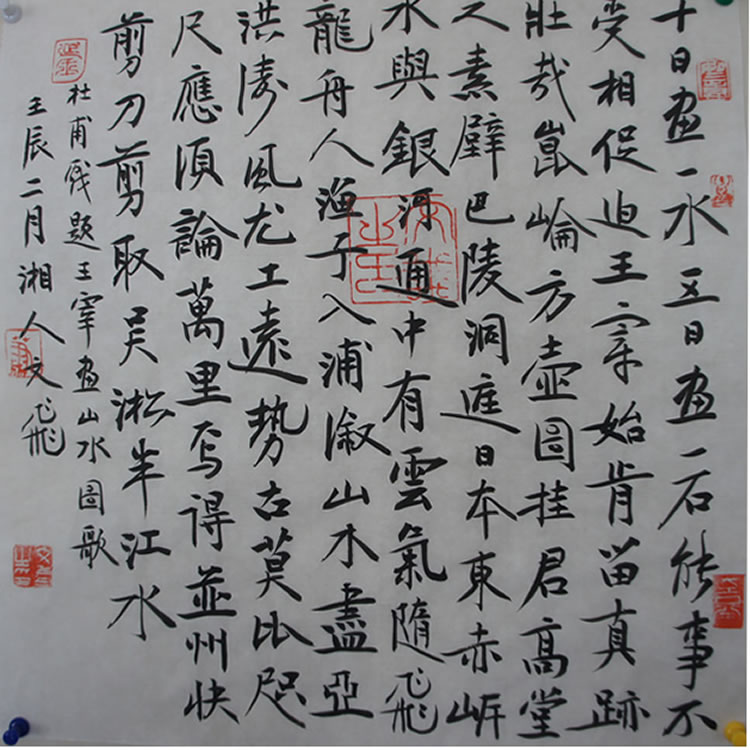 十日画一水五日画一石能事不
受相促迫王宰始肯留真跡
壯哉崑崙方壺圖挂君高堂
之素壁巴陵洞庭日本東赤岍
水與銀河通中有雲氣隨飛
龍舟人漁子入浦溆山木盡亞
洪濤風尤工遠勢古莫比咫
尺應須論萬里焉得並州快
剪刀剪取吴淞半江水
杜甫戏題王宰画山水圖歌
壬辰二月湘人文飛